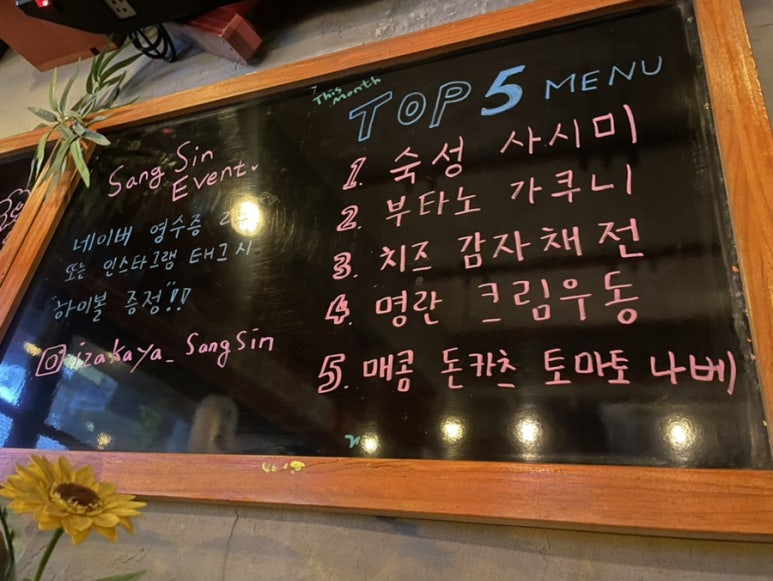 Sang Sin
Event.
네이버 영수증 리뷰
또는 인스타그램 태그 시
"하이볼 증정"!!
izakaya_sangsin
This
Month
TOP 5 MENU
1. 숙성 사시미
2. 부타노 가쿠니
3. 치즈 감자채전
4. 명란 크림우동
5. 매콤 돈카츠 토마토 나베